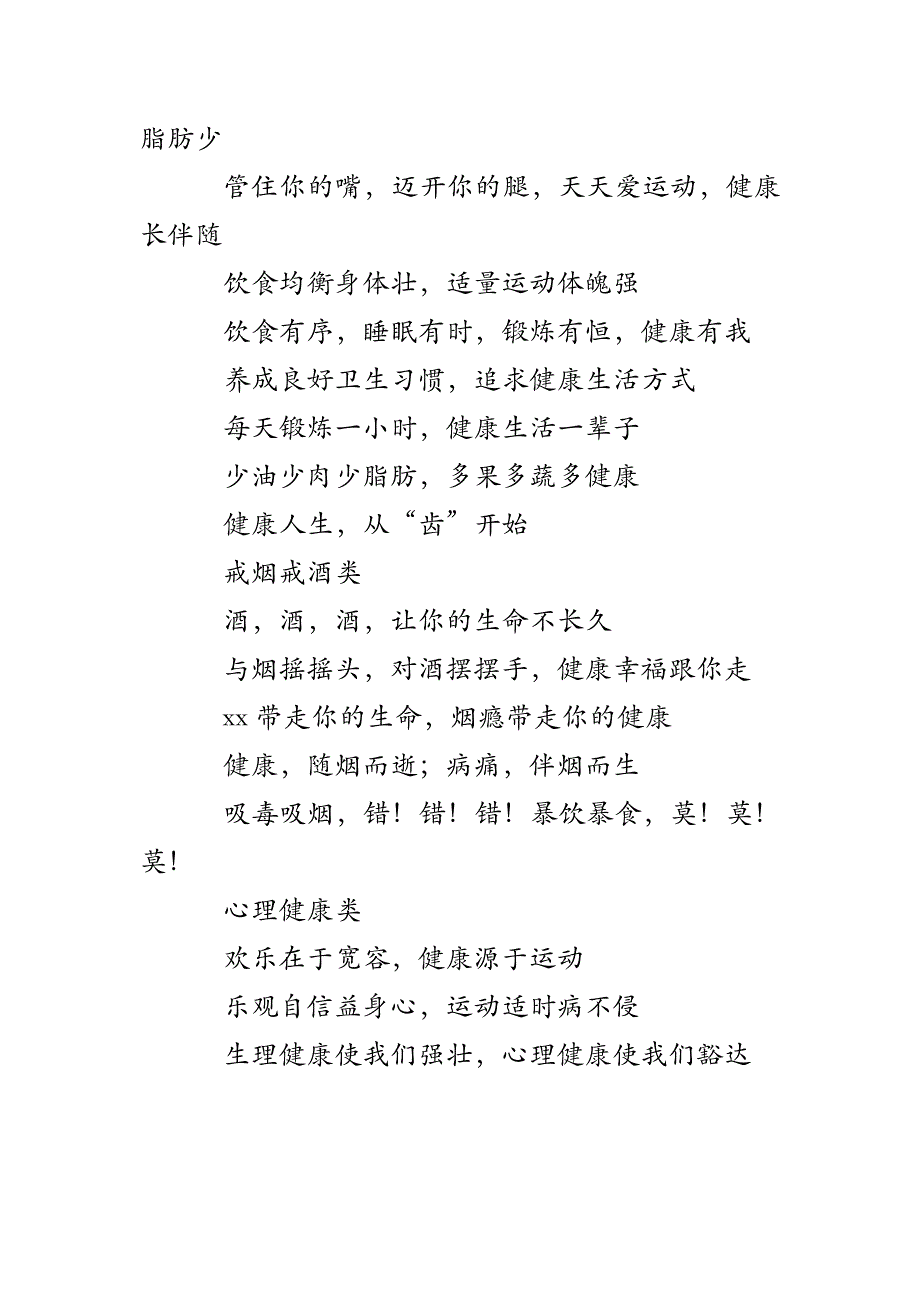 脂肪少
管住你的嘴，迈开你的腿，天天爱运动，健康
长伴随
饮食均衡身体壮，适量运动体魄强
饮食有序，睡眠有时，锻炼有恒，健康有我
养成良好卫生习惯，追求健康生活方式
每天锻炼一小时，健康生活一辈子
少油少肉少脂肪，多果多蔬多健康
健康人生，从“齿”开始
戒烟戒酒类
酒，酒，酒，让你的生命不长久
与烟摇摇头，对酒摆摆手，健康幸福跟你走
xx 带走你的生命，烟瘾带走你的健康
健康，随烟而逝；病痛，伴烟而生
吸毒吸烟，错！错！错！暴饮暴食，莫！莫！
莫！
心理健康类
欢乐在于宽容，健康源于运动
乐观自信益身心，运动适时病不侵
生理健康使我们强壮，心理健康使我们豁达